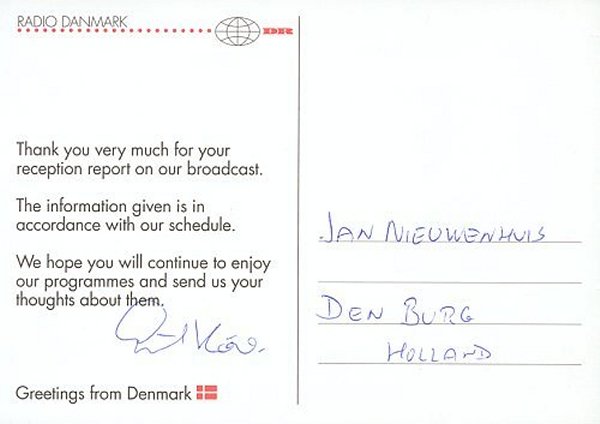 RADIO DANMARK
DR
Thank you very much for your
reception report on our broadcast.
The information given is in
accordance with our schedule.
We hope you will continue to enjoy
our programmes and send us your
thoughts about them.
Greetings from Denmark
JAN NIEUWENHUIS
DEN BURG
HOLLAND